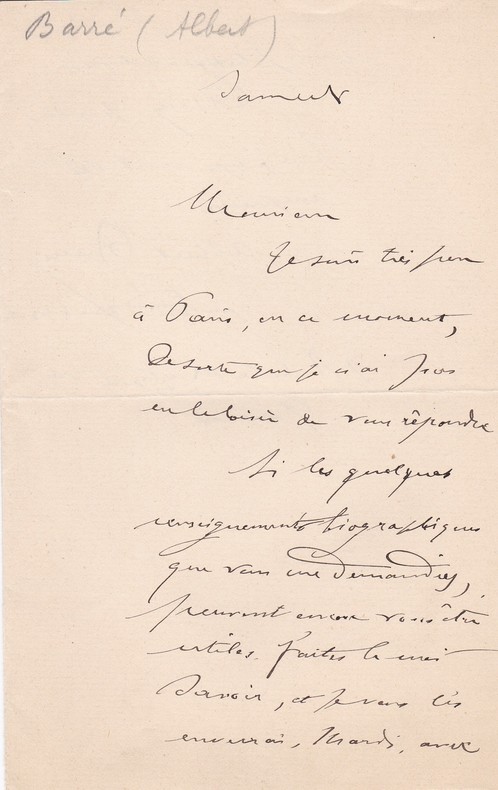 Barré (Albert)
Samedi
Monsieur
Je suis très peu
à Paris, en ce moment,
De sorte que je n'ai pas
eu le loisir de vous répondre
Si les quelques
renseignements biographiques
que vous me demandiez,
peuvent encore vous être
utiles. faites le moi
savoir, et je vous les
enverrai, Mardi, avec